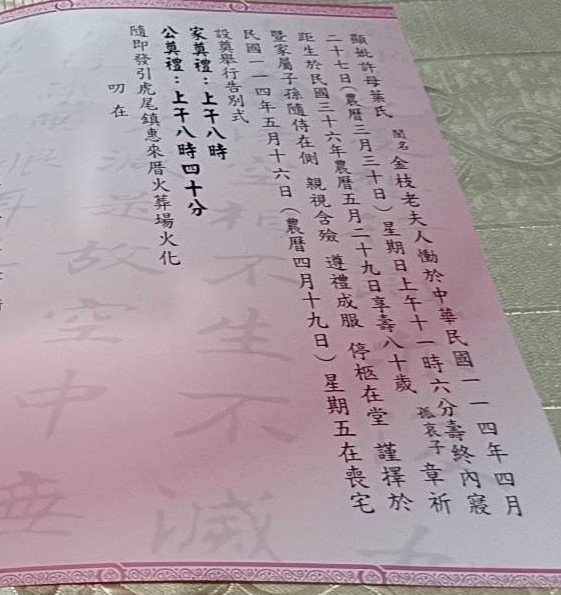 顯妣許母葉氏 閨名 金枝老夫人慟於中華民國一一四年四月
二十七日（農曆三月三十日）星期日上午十一時六分壽終內寢
距生於民國三十六年農曆五月二十九日享壽八十歲 孤哀子 章祈
暨家屬子孫隨侍在側 親視含殮 遵禮成服 停柩在堂 謹擇於
民國一一四年五月十六日（農曆四月十九日）星期五在喪宅
設奠舉行告別式
家奠禮：上午八時
公奠禮：上午八時四十分
隨即發引虎尾鎮惠來厝火葬場火化
叨在
空相不生不滅
是故空中無